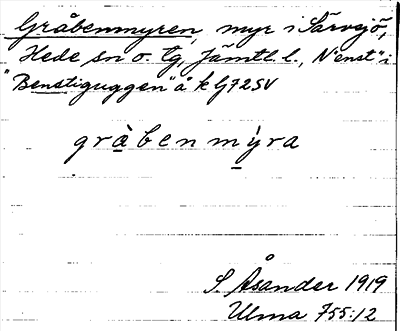 Gråbenmyren, myr i Särvsjö,
Hede sn o. tg, Jämtl. l., N "enst" i
"Benstiguggen" å k G72SV
gràbenmýra
S. Åsander 1919
Ulma 755:12